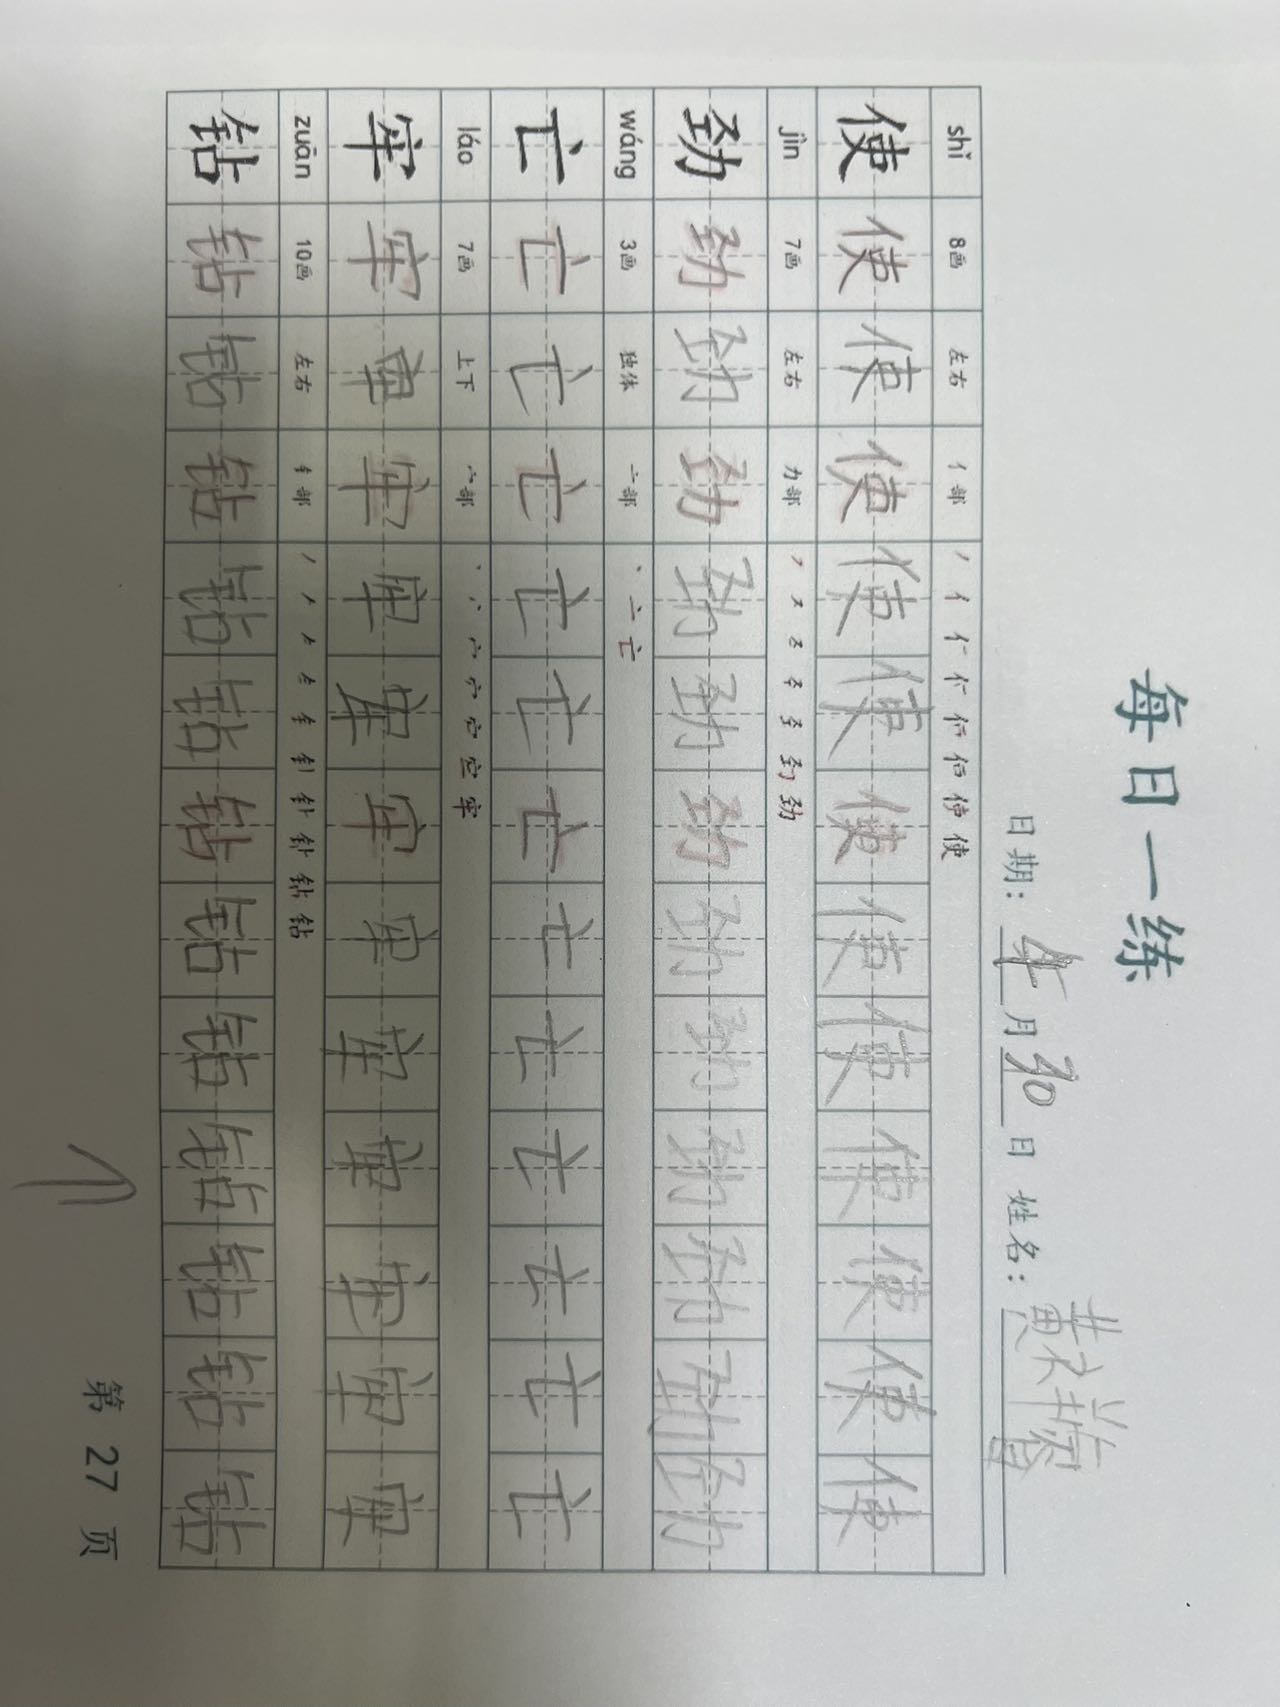 每日一练
日期: 4月30日 姓名: 黄
shǐ 8画 左右 亻部 丿 亻 使
使 使 使 使 使 使 使 使 使 使 使 使 使
jìn 7画 左右 力部 劲
劲 劲 劲 劲 劲 劲 劲 劲 劲 劲 劲 劲 劲
wáng 3画 独体 亠部 丶 亠 亡
亡 亡 亡 亡 亡 亡 亡 亡 亡 亡 亡 亡 亡
láo 7画 上下 宀部 丶 宀 牢
牢 牢 牢 牢 牢 牢 牢 牢 牢 牢 牢 牢 牢
zuān 10画 左右 钅部 丿 钅 钻
钻 钻 钻 钻 钻 钻 钻 钻 钻 钻 钻 钻 钻
第 27 页